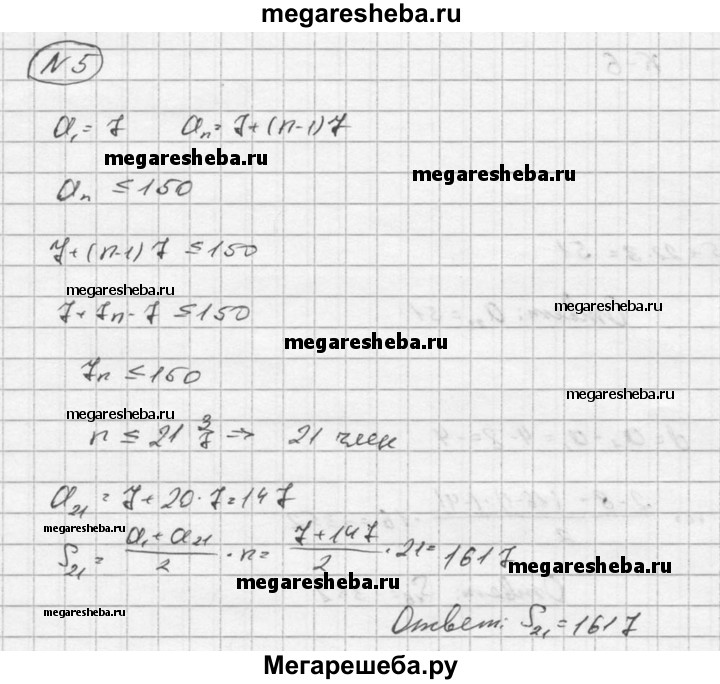 megaresheba.ru
N 5
a₁ = 7 aₙ = 7+(n-1)7
megaresheba.ru
megaresheba.ru
aₙ ≤ 150
7+(n-1) 7 ≤ 150
megaresheba.ru
7+7n-7 ≤ 150
megaresheba.ru
7n ≤ 150
megaresheba.ru
megaresheba.ru
n ≤ 21 3/7 => 21 член
a₂₁ = 7 + 20 · 7 = 147
megaresheba.ru
S₂₁ = (a₁ + a₂₁)/2 · n = (7 + 147)/2 · 21 = 1617
megaresheba.ru
megaresheba.ru
megaresheba.ru
Ответ: S₂₁ = 1617
Мегарешеба.ру